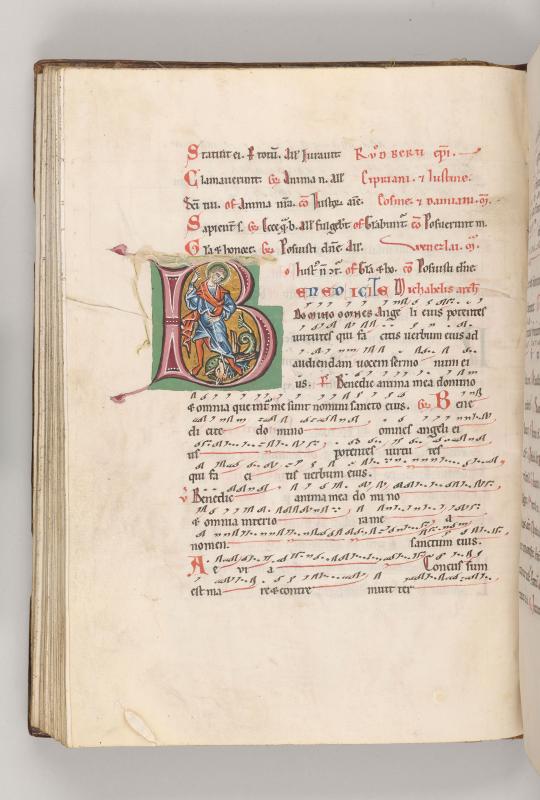 Statuit ei. totū. All' Iurauit. RVODBERTI epi.
Clamauerunt. Anima n. all' Cipriani. & Iustine.
of Anima nr̄a. cō Cosme. & damiani. m̄.
Sapient s. Ecce q̄ b. all' fulgebt. of Gl̄abunt. cō Posuerunt m.
Gl̄a & honore. Posuisti dn̄e. all. Wenezlai. m̄.
o Iust' n ꝯt. of Gl̄a & ho. cō Posuisti dn̄e.
BENEDICITE Michahelis arch
Domino omnes Ange li eius potentes
uirtutes qui fa citis uerbum eius ad
audiendam uocem sermo num ei
us. Ps. Benedic anima mea domino
& omnia que int̄ me sunt nomini sancto eius. Bene
di cite do mino omnes angeli ei
us potentes uirtu tes
qui fa ci tis uerbum eius.
V Benedic anima mea do mi no
& omnia interio ra me a
nomen sanctum eius.
A e vi a Concussum
est ma re & contre muit ter